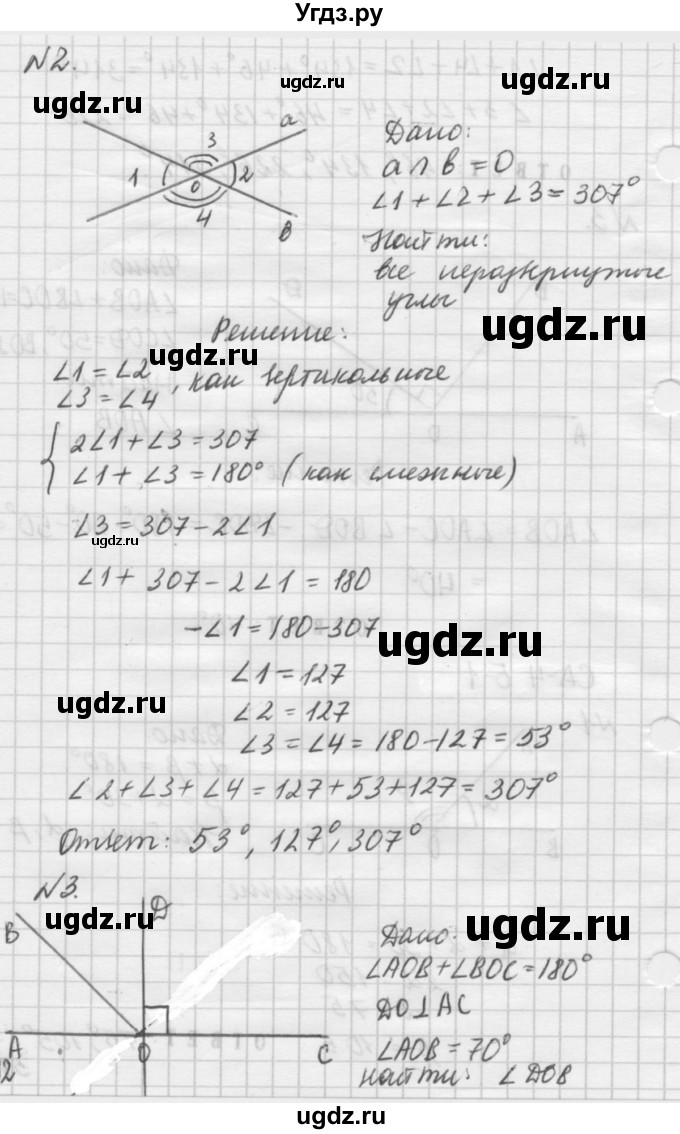 Угдз.ру
N2.
ugdz.ru
ugdz.ru
a
3
1
0
2
4
B
Дано:
a∩b=O
∠1+∠2+∠3=307°
Найти:
все неразвернутые
углы
ugdz.ru
Решение:
ugdz.ru
∠1=∠2
∠3=∠4, как вертикальные
{2∠1+∠3=307
∠1+∠3=180° (как смежные)
∠3=307-2∠1
ugdz.ru
∠1+307-2∠1=180
-∠1=180-307
ugdz.ru
∠1=127
ugdz.ru
∠2=127
∠3=∠4=180-127=53°
∠2+∠3+∠4=127+53+127=307°
Ответ: 53°, 127°, 307°
ugdz.ru
N3.
ugdz.ru
ugdz.ru
B
D
A
O
C
Дано:
∠AOB+∠BOC=180°
DO⊥AC
∠AOB=70°
найти: ∠DOB
2
ugdz.ru